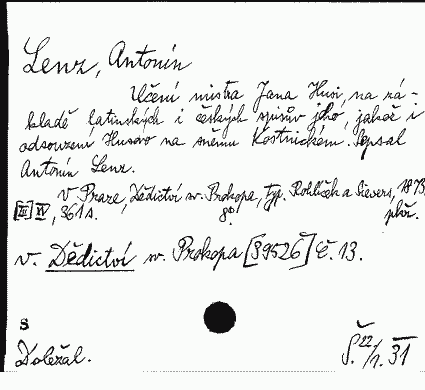 Lenz, Antonín
Učení mistra Jana Husi, na zá-
kladě latinských i českých spisův jeho, jakož i
odsouzení Husovo na sněmu Kostnickém. Sepsal
Antonín Lenz.
V Praze, Dědictví sv. Prokopa, typ. Rohlíček a Sievers, 1875
[III] IV, 361 s. 8°. přív.
v. Dědictví sv. Prokopa [39526] č. 13.
S
Doležal.
Š. 22/1. 31